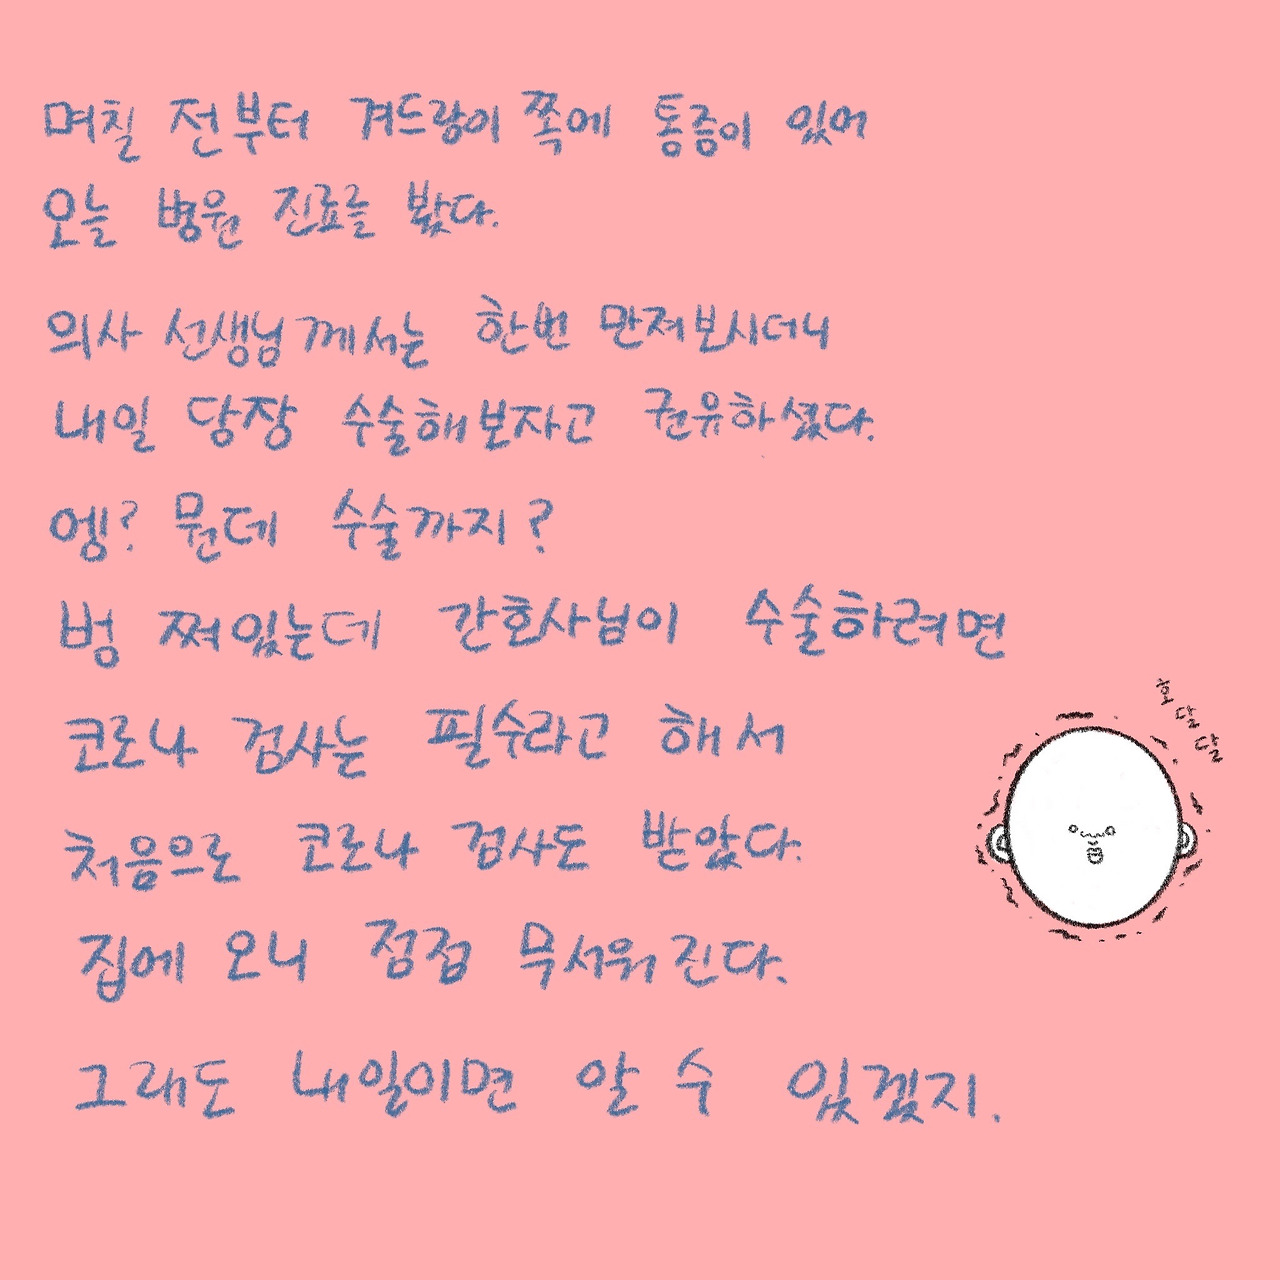 며칠 전부터 겨드랑이 쪽에 통증이 있어
오늘 병원 진료를 봤다.
의사 선생님께서는 한번 만져보시더니
내일 당장 수술해보자고 권유하셨다.
엥? 뭔데 수술까지?
벙 쪄있는데 간호사님이 수술하려면
코로나 검사는 필수라고 해서
처음으로 코로나 검사도 받았다.
집에 오니 점점 무서워진다.
그래도 내일이면 알 수 있겠지.
호
달
달